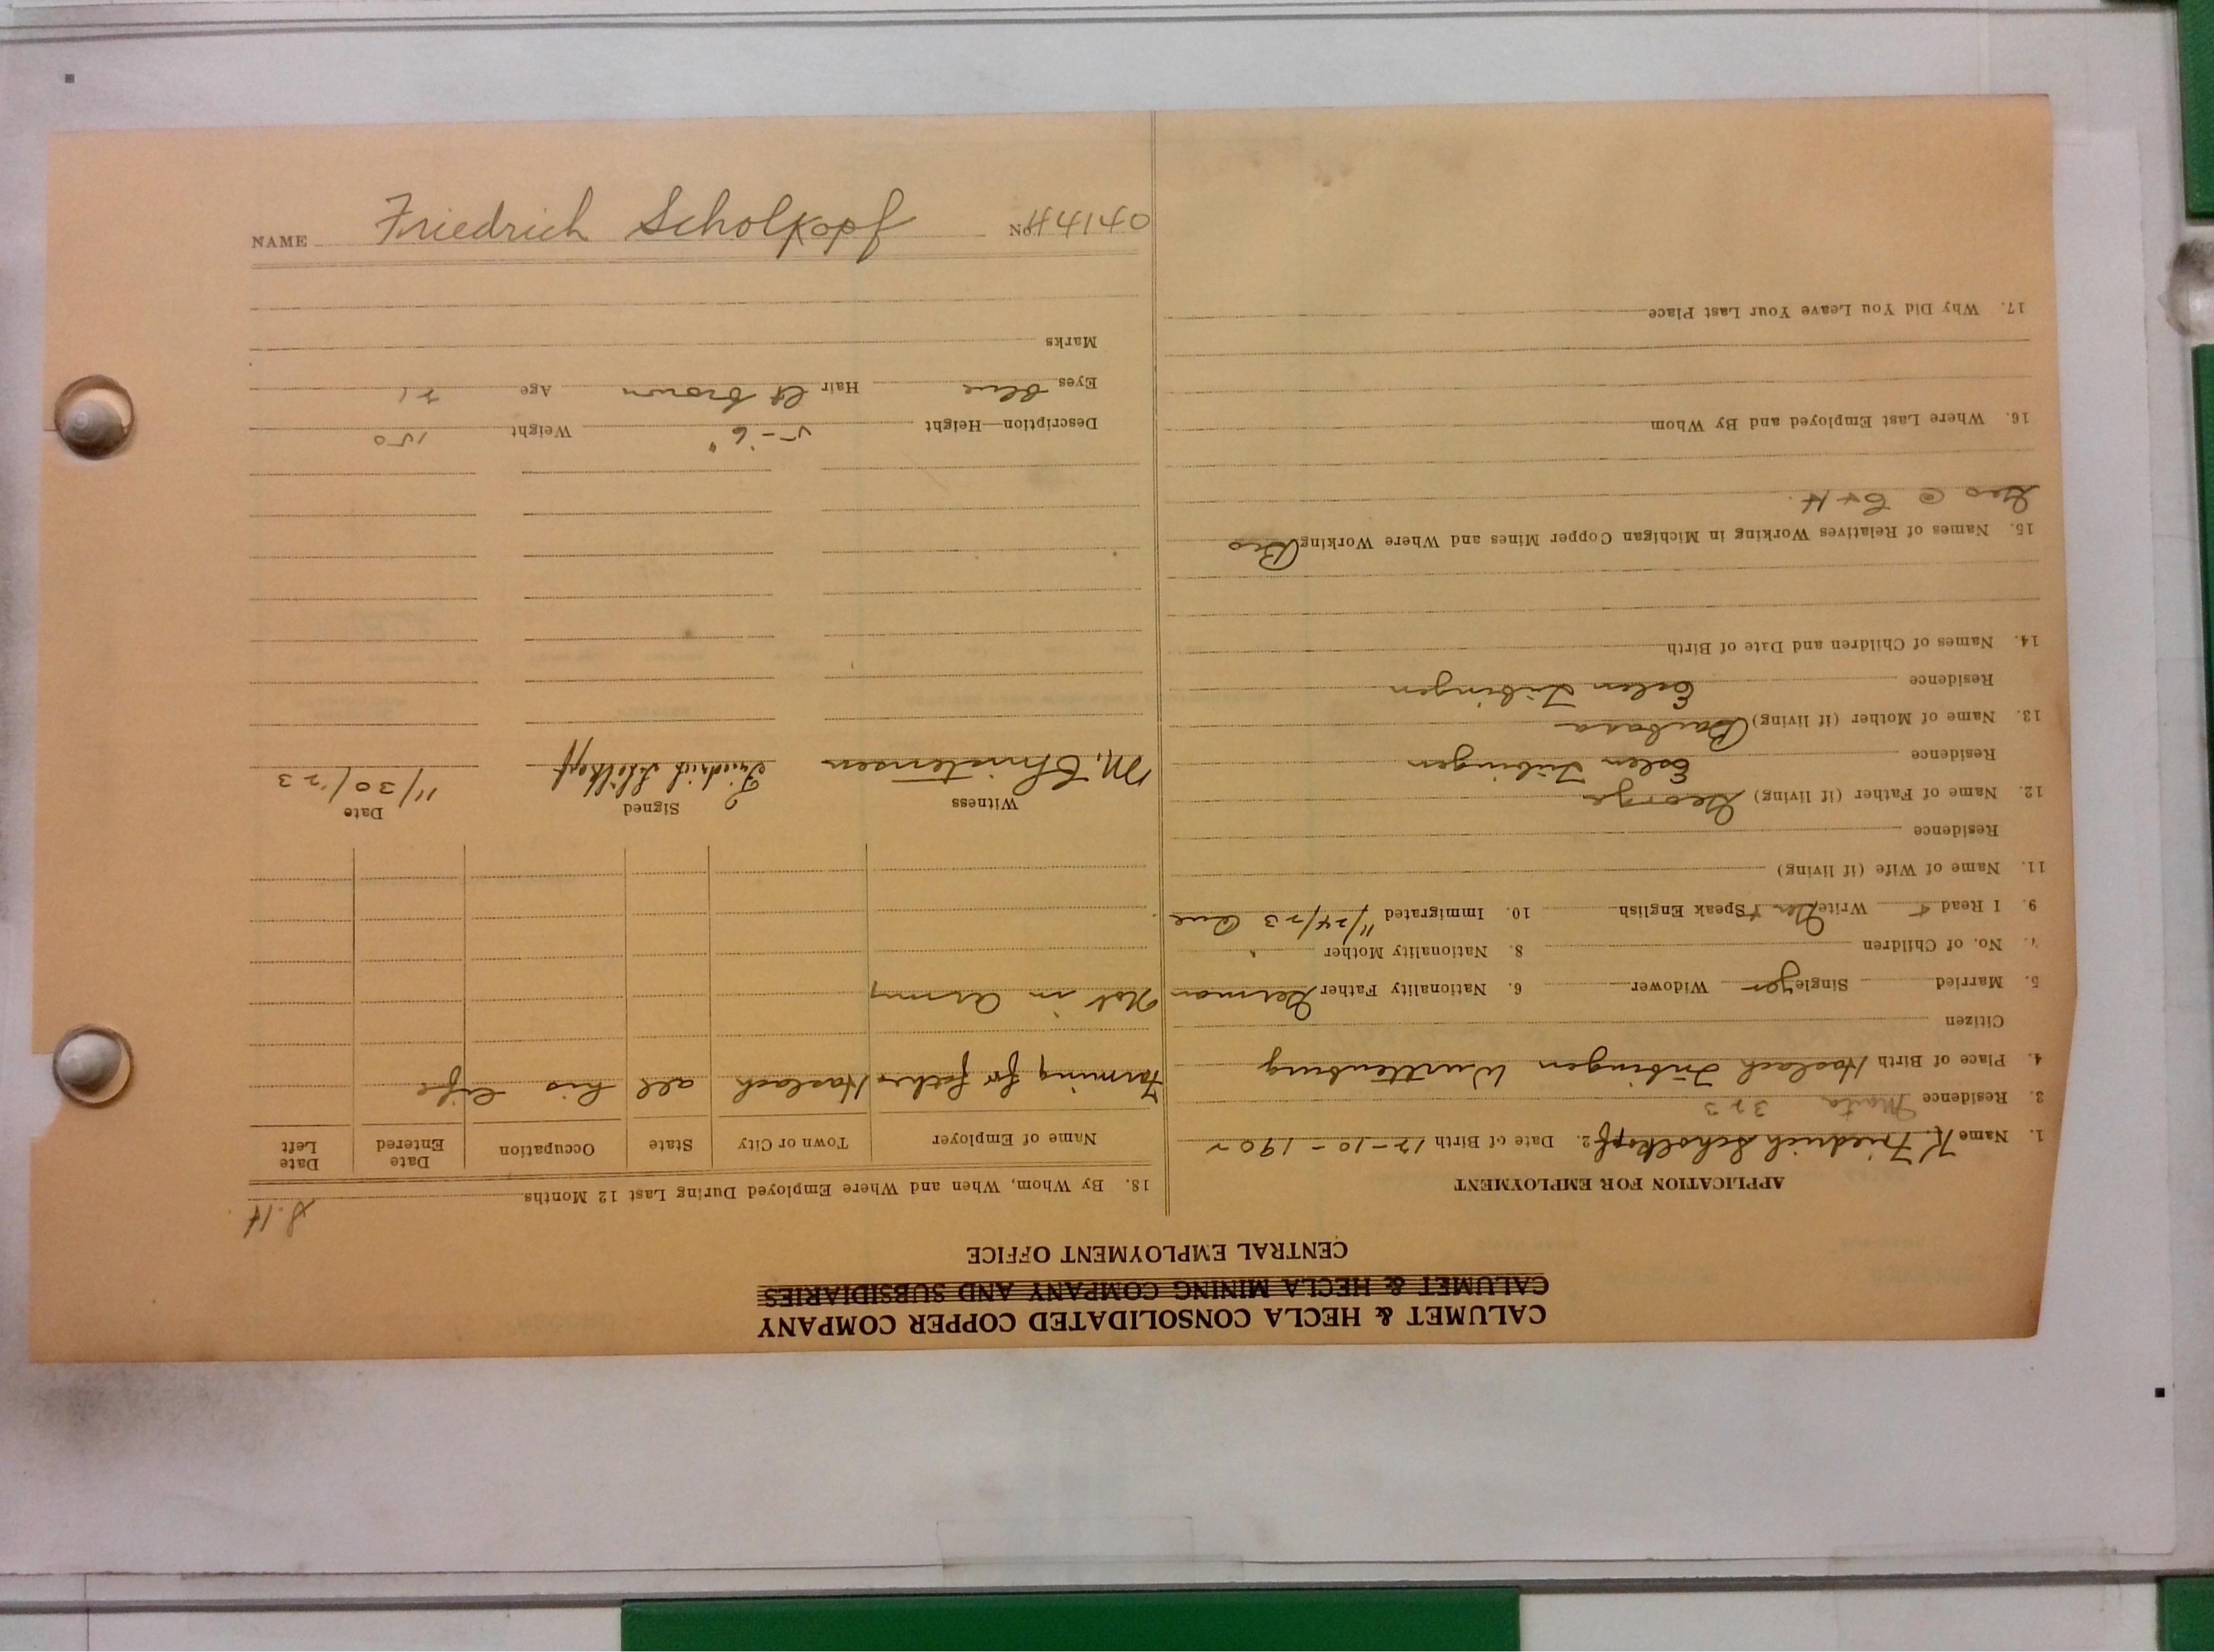 CALUMET & HECLA CONSOLIDATED COPPER COMPANY
CALUMET & HECLA MINING COMPANY AND SUBSIDIARIES
CENTRAL EMPLOYMENT OFFICE
APPLICATION FOR EMPLOYMENT
1. Name K. Friedrich Scholkopf 2. Date of Birth 12-10-1902
3. Residence 323
4. Place of Birth Haslach Tübingen Wurttenburg
Citizen
5. Married Single yes Widower 6. Nationality Father German
7. No. of Children 8. Nationality Mother "
9. I Read + Write Ger + Speak English 10. Immigrated 11/24/23
11. Name of Wife (if living)
Residence
12. Name of Father (if living) George
Residence Tübingen
13. Name of Mother (if living) Barbara
Residence Tübingen
14. Names of Children and Date of Birth
15. Names of Relatives Working in Michigan Copper Mines and Where Working Bro
Geo @ C+H.
16. Where Last Employed and By Whom
17. Why Did You Leave Your Last Place
S.H
18. By Whom, When and Where Employed During Last 12 Months
Name of Employer Town or City State Occupation Date Entered Date Left
Farming for father Haslach all his life
Not in army
Witness Signed Date
M. Christensen Friedrich Schölkopf 11/30/23
Description—Height 5-6" Weight 150
Eyes blue Hair lt brown Age 21
Marks
NAME Friedrich Scholkopf No. 44140